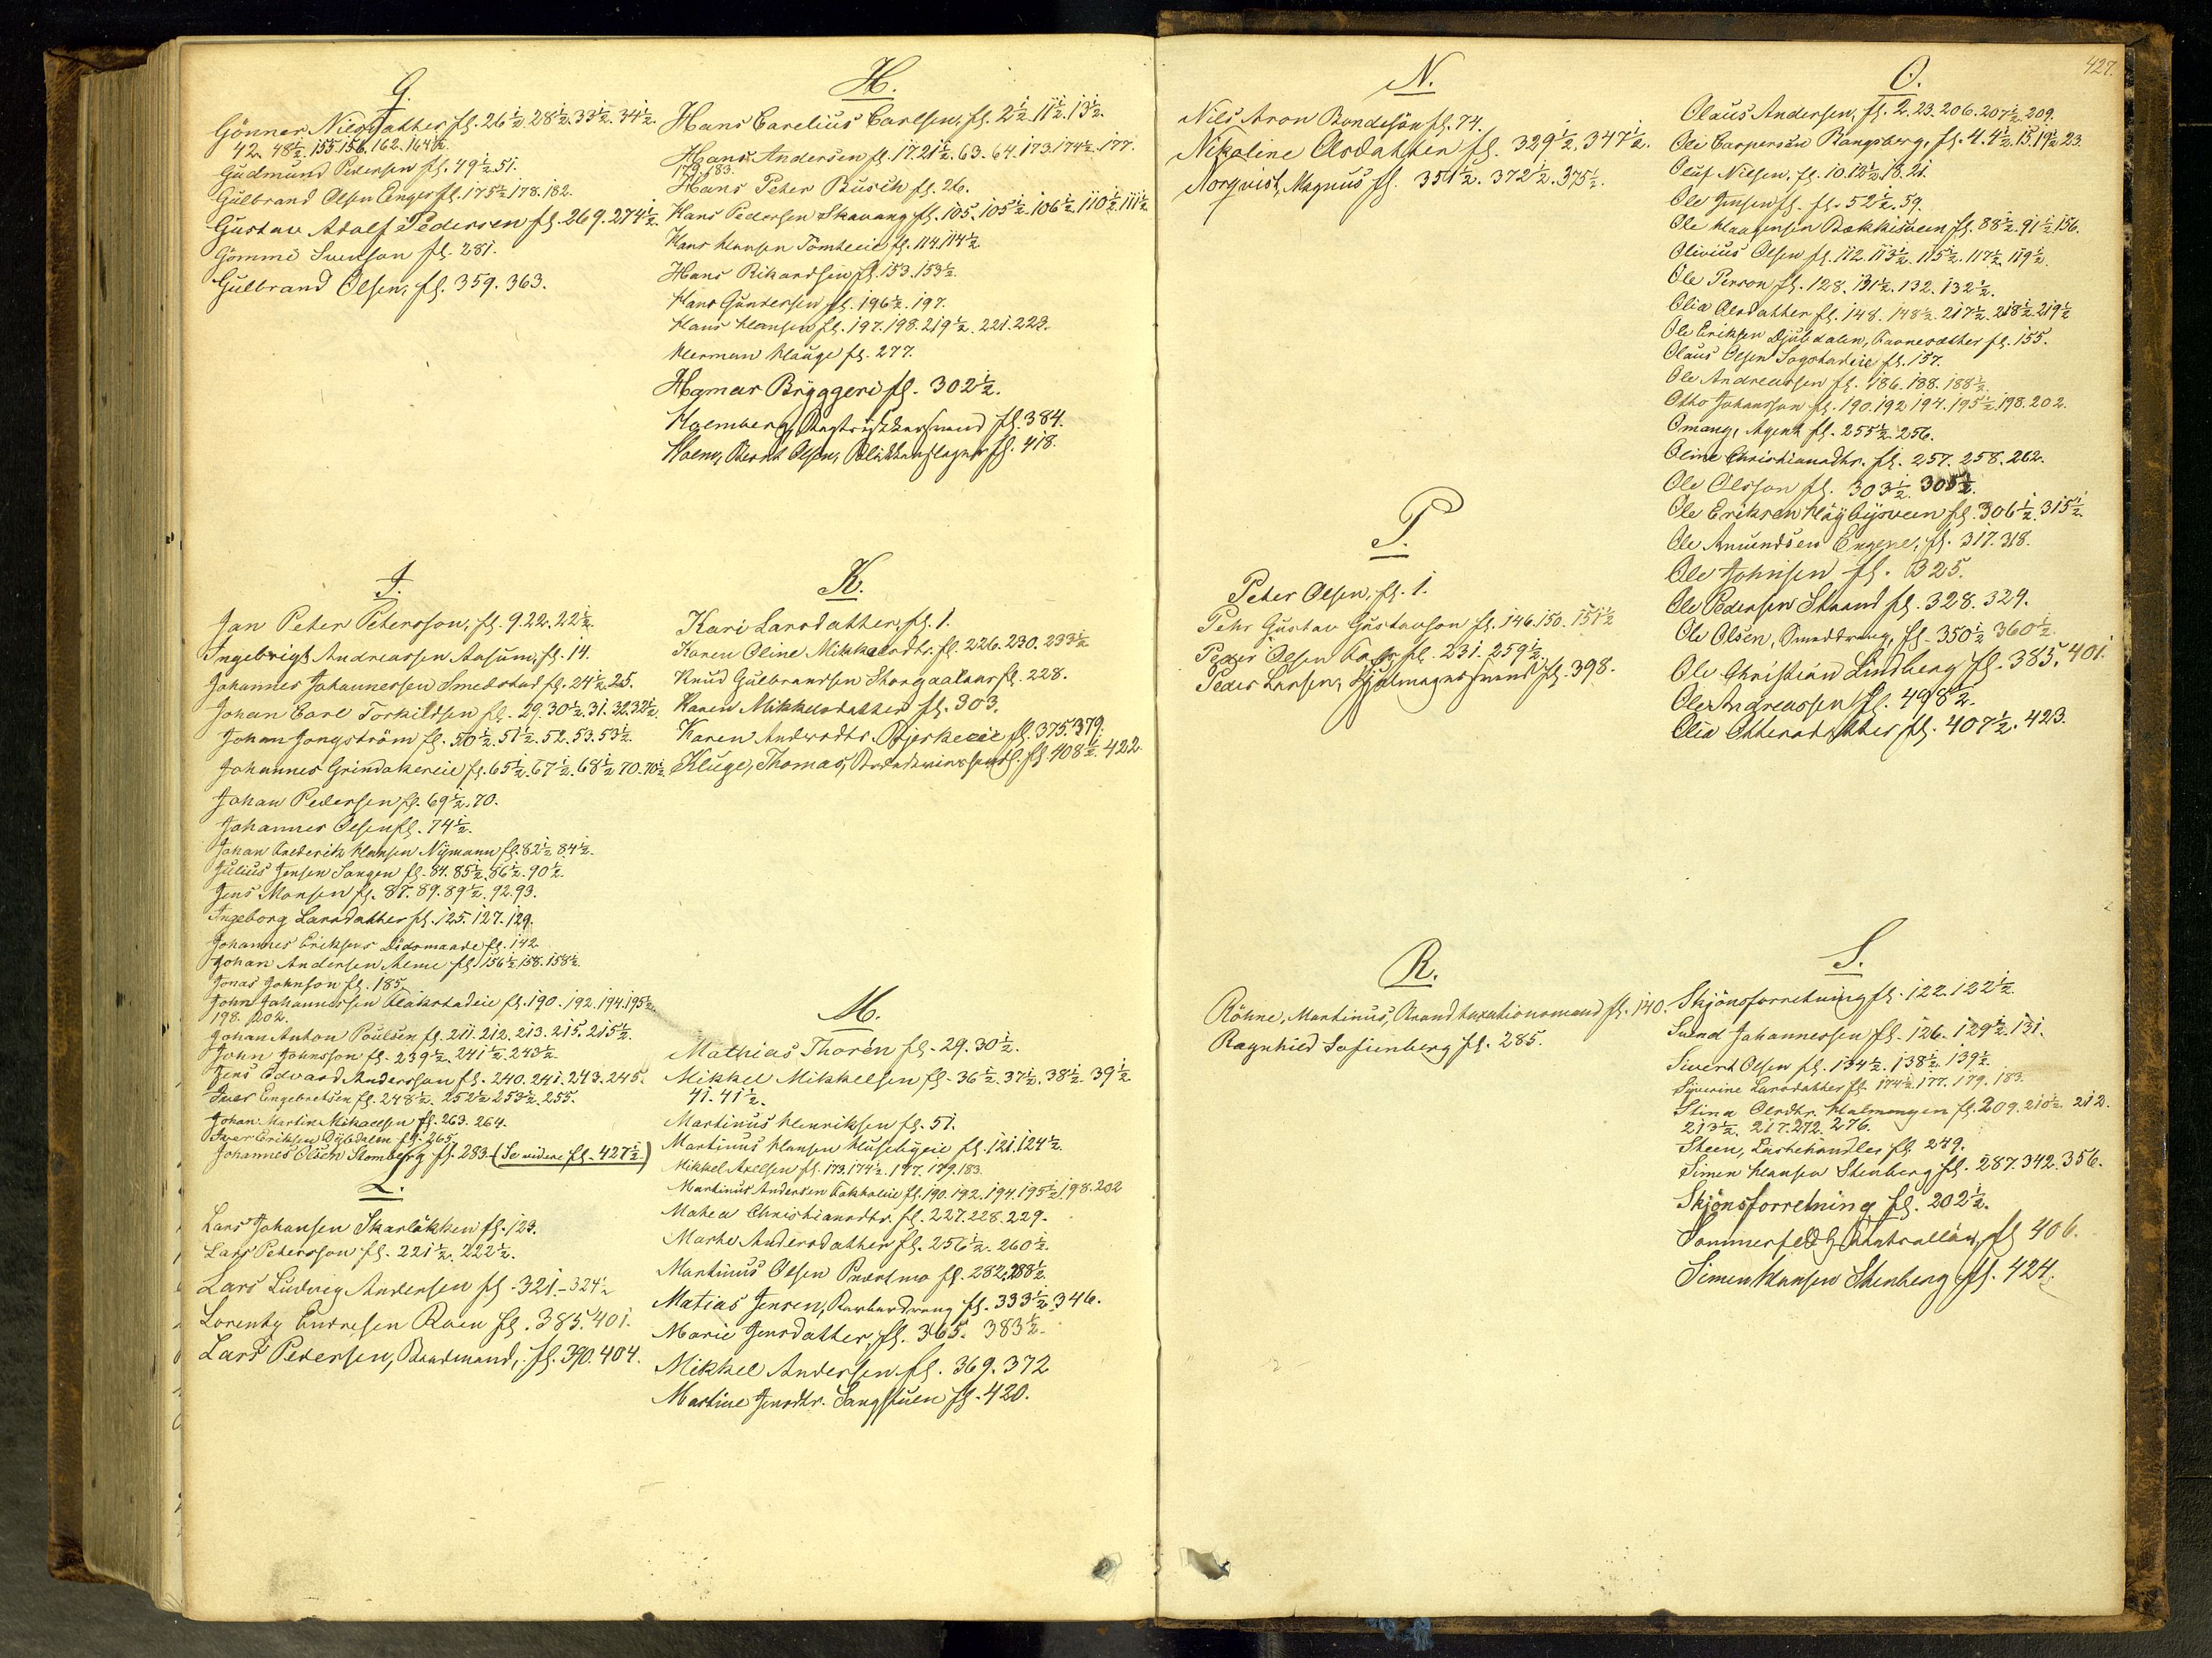 G.
Gönner Nilsdatter fl. 26½. 28½. 33½. 34½.
42. 48½. 155. 156. 162. 164½.
Gudmund Pedersen fl. 49½. 51.
Gulbrand Olsen Enger fl. 175½. 178. 182.
Gustav Adolf Pedersen fl. 269. 274½.
Gömme Svenson fl. 281.
Gulbrand Olsen, fl. 359. 363.
H.
Hans Carelius Carlsen, fl. 2½. 11½. 13½.
Hans Andersen fl. 17. 21½. 63. 64. 173. 174½. 177.
179. 183.
Hans Peter Busch fl. 26.
Hans Pedersen Skavang fl. 105. 105½. 106½. 110½. 111½.
Hans Hansen Tomteeie fl. 114. 114½.
Hans Rikardsen fl. 153. 153½.
Hans Gundersen fl. 196½. 197.
Hans Hansen fl. 197. 198. 219½. 221. 223.
Herman Hauge fl. 277.
Hamar Bryggeri fl. 302½.
Holmberg, fl. 384.
Holm, Bernt Olsen, fl. 418.
I.
Jan Peter Petersson, fl. 9. 22. 22½.
Ingebrigt Andreassen Aasum, fl. 14.
Johannes Johannessen Smedstad fl. 24½. 25.
Johan Carl Torkildsen fl. 29. 30½. 31. 32. 32½.
Johan Jongström fl. 50½. 51½. 52. 53. 53½.
Johannes Grindakereie fl. 65½. 67½. 68½. 70. 70½.
Johan Pedersen fl. 69½. 70.
Johannes Olsen fl. 74½.
Johan Frederik Hansen Nymann fl. 82½. 84½.
Julius Jensen Sangen fl. 84. 85½. 86½. 90½.
Jens Monsen fl. 87. 89. 89½. 92. 93.
Ingeborg Larsdatter fl. 125. 127. 129.
Johannes Eriksens Dödsmaade fl. 142
Johan Andersen fl. 156½. 158. 158½.
Jonas Johnson fl. 185.
John Johannessen Flakstadeie fl. 190. 192. 194. 195½.
198. 202.
Johan Anton Poulsen fl. 211. 212. 213. 215. 215½.
John Johnsson fl. 239½. 241½. 243½.
Jens Edvard Andersson fl. 240. 241. 243. 245.
Iver Engebretsen fl. 248½. 252½. 253½. 255.
Johan Martin Mikaelsen fl. 263. 264.
Iver Eriksen Djubdalen fl. 265.
Johannes Olsen Stomberg fl. 283. (Se videre fl. 427½)
K.
Kari Larsdatter, fl. 1.
Karen Oline Mikkelsdtr. fl. 226. 230. 233½.
Knud Gulbrandsen fl. 228.
Karen Mikkelsdatter fl. 303.
Karen Andersdtr. Bjerkeeie fl. 375. 379.
Kluge, Thomas, fl. 408½. 422
L.
Lars Johansen Skarløkken fl. 123.
Lars Petersson fl. 221½. 222½.
Lars Ludvig Andersen fl. 321. 324½
Lorents Endresen Roen fl. 385. 401.
Lars Pedersen, fl. 390. 404.
M.
Mathias Thorén fl. 29. 30½.
Mikkel Mikkelsen fl. 36½. 37½. 38½. 39½.
41. 41½.
Martinus Henriksen fl. 51.
Martinus Hansen Husebyeie fl. 121. 124½.
Mikkel Axelsen fl. 173. 174½. 177. 179. 183.
Martinus Andersen fl. 190. 192. 194. 195½. 198. 202
Mathea Christiansdtr. fl. 227. 228. 229.
Marthe Andersdatter fl. 256½. 260½.
Martinus Olsen Præstmo fl. 282. 288½.
Matias Jensen, fl. 333½. 346.
Marie Jensdatter, fl. 365. 383½.
Mikkel Andersen fl. 369. 372
Martine Jensdtr. Sangstuen fl. 420.
N.
Nils Aron Bondesön fl. 74.
Nikoline Olsdatter fl. 329½. 347½.
Norqvist, Magnus fl. 351½. 372½. 375½.
P.
Peter Olsen, fl. 1.
Pehr Gustav Gustavson fl. 146. 150. 151½
Peder Olsen fl. 231. 259½.
Peder Larsen, fl. 398.
R.
Röhne, Martinus, Brandtaxationsmand fl. 140.
Ragnhild Sofienberg fl. 285.
427.
O.
Olaus Andersen, fl. 2. 23. 206. 207½. 209.
Ole Caspersen Rangsberg, fl. 4. 4½. 15. 19½. 23.
Oluf Nilsen, fl. 10. 13½. 18. 21.
Ole Jensen fl. 52½. 59.
Ole Haagensen Bækkisveen fl. 88½. 91½. 156.
Olivius Olsen fl. 112. 113½. 115½. 117½. 119½.
Ole Person fl. 128. 131½. 132. 132½.
Olia Olsdatter fl. 148. 148½. 217½. 218½. 219½
Ole Eriksen Djubdalen, fl. 155.
Olaus Olsen Sogstadeie fl. 157.
Ole Andreassen fl. 186. 188. 188½.
Otto Johansson fl. 190. 192. 194. 195½. 198. 202.
Omang, Agent fl. 255½. 256.
Oline Christiansdtr. fl. 257. 258. 262.
Ole Olsson fl. 303½. 305½.
Ole Eriksen Höybysveen fl. 306½. 315½.
Ole Amundsen Engene, fl. 317. 318.
Ole Johnsen fl. 325.
Ole Pedersen Strand fl. 328. 329.
Ole Olsen, Smeddreng, fl. 350½. 360½.
Ole Christian Lindberg fl. 385. 401.
Ole Andreassen fl. 498½.
Olea Ottersdatter fl. 407½. 423.
S.
Skjönsforretning fl. 122. 122½.
Svend Johannessen fl. 126. 129½. 131.
Sivert Olsen fl. 134½. 138½. 139½.
Syverine Larsdatter fl. 174½. 177. 179. 183.
Stina Olsdtr. Halmengen fl. 209. 210½. 212.
213½. 217. 272. 276.
Steen, Lasthandler fl. 249.
Simen Hansen Stenberg fl. 287. 342. 356.
Skjönsforretning fl. 202½.
Sommerfeldt, fl. 406.
Simen Hansen Stenberg fl. 424.